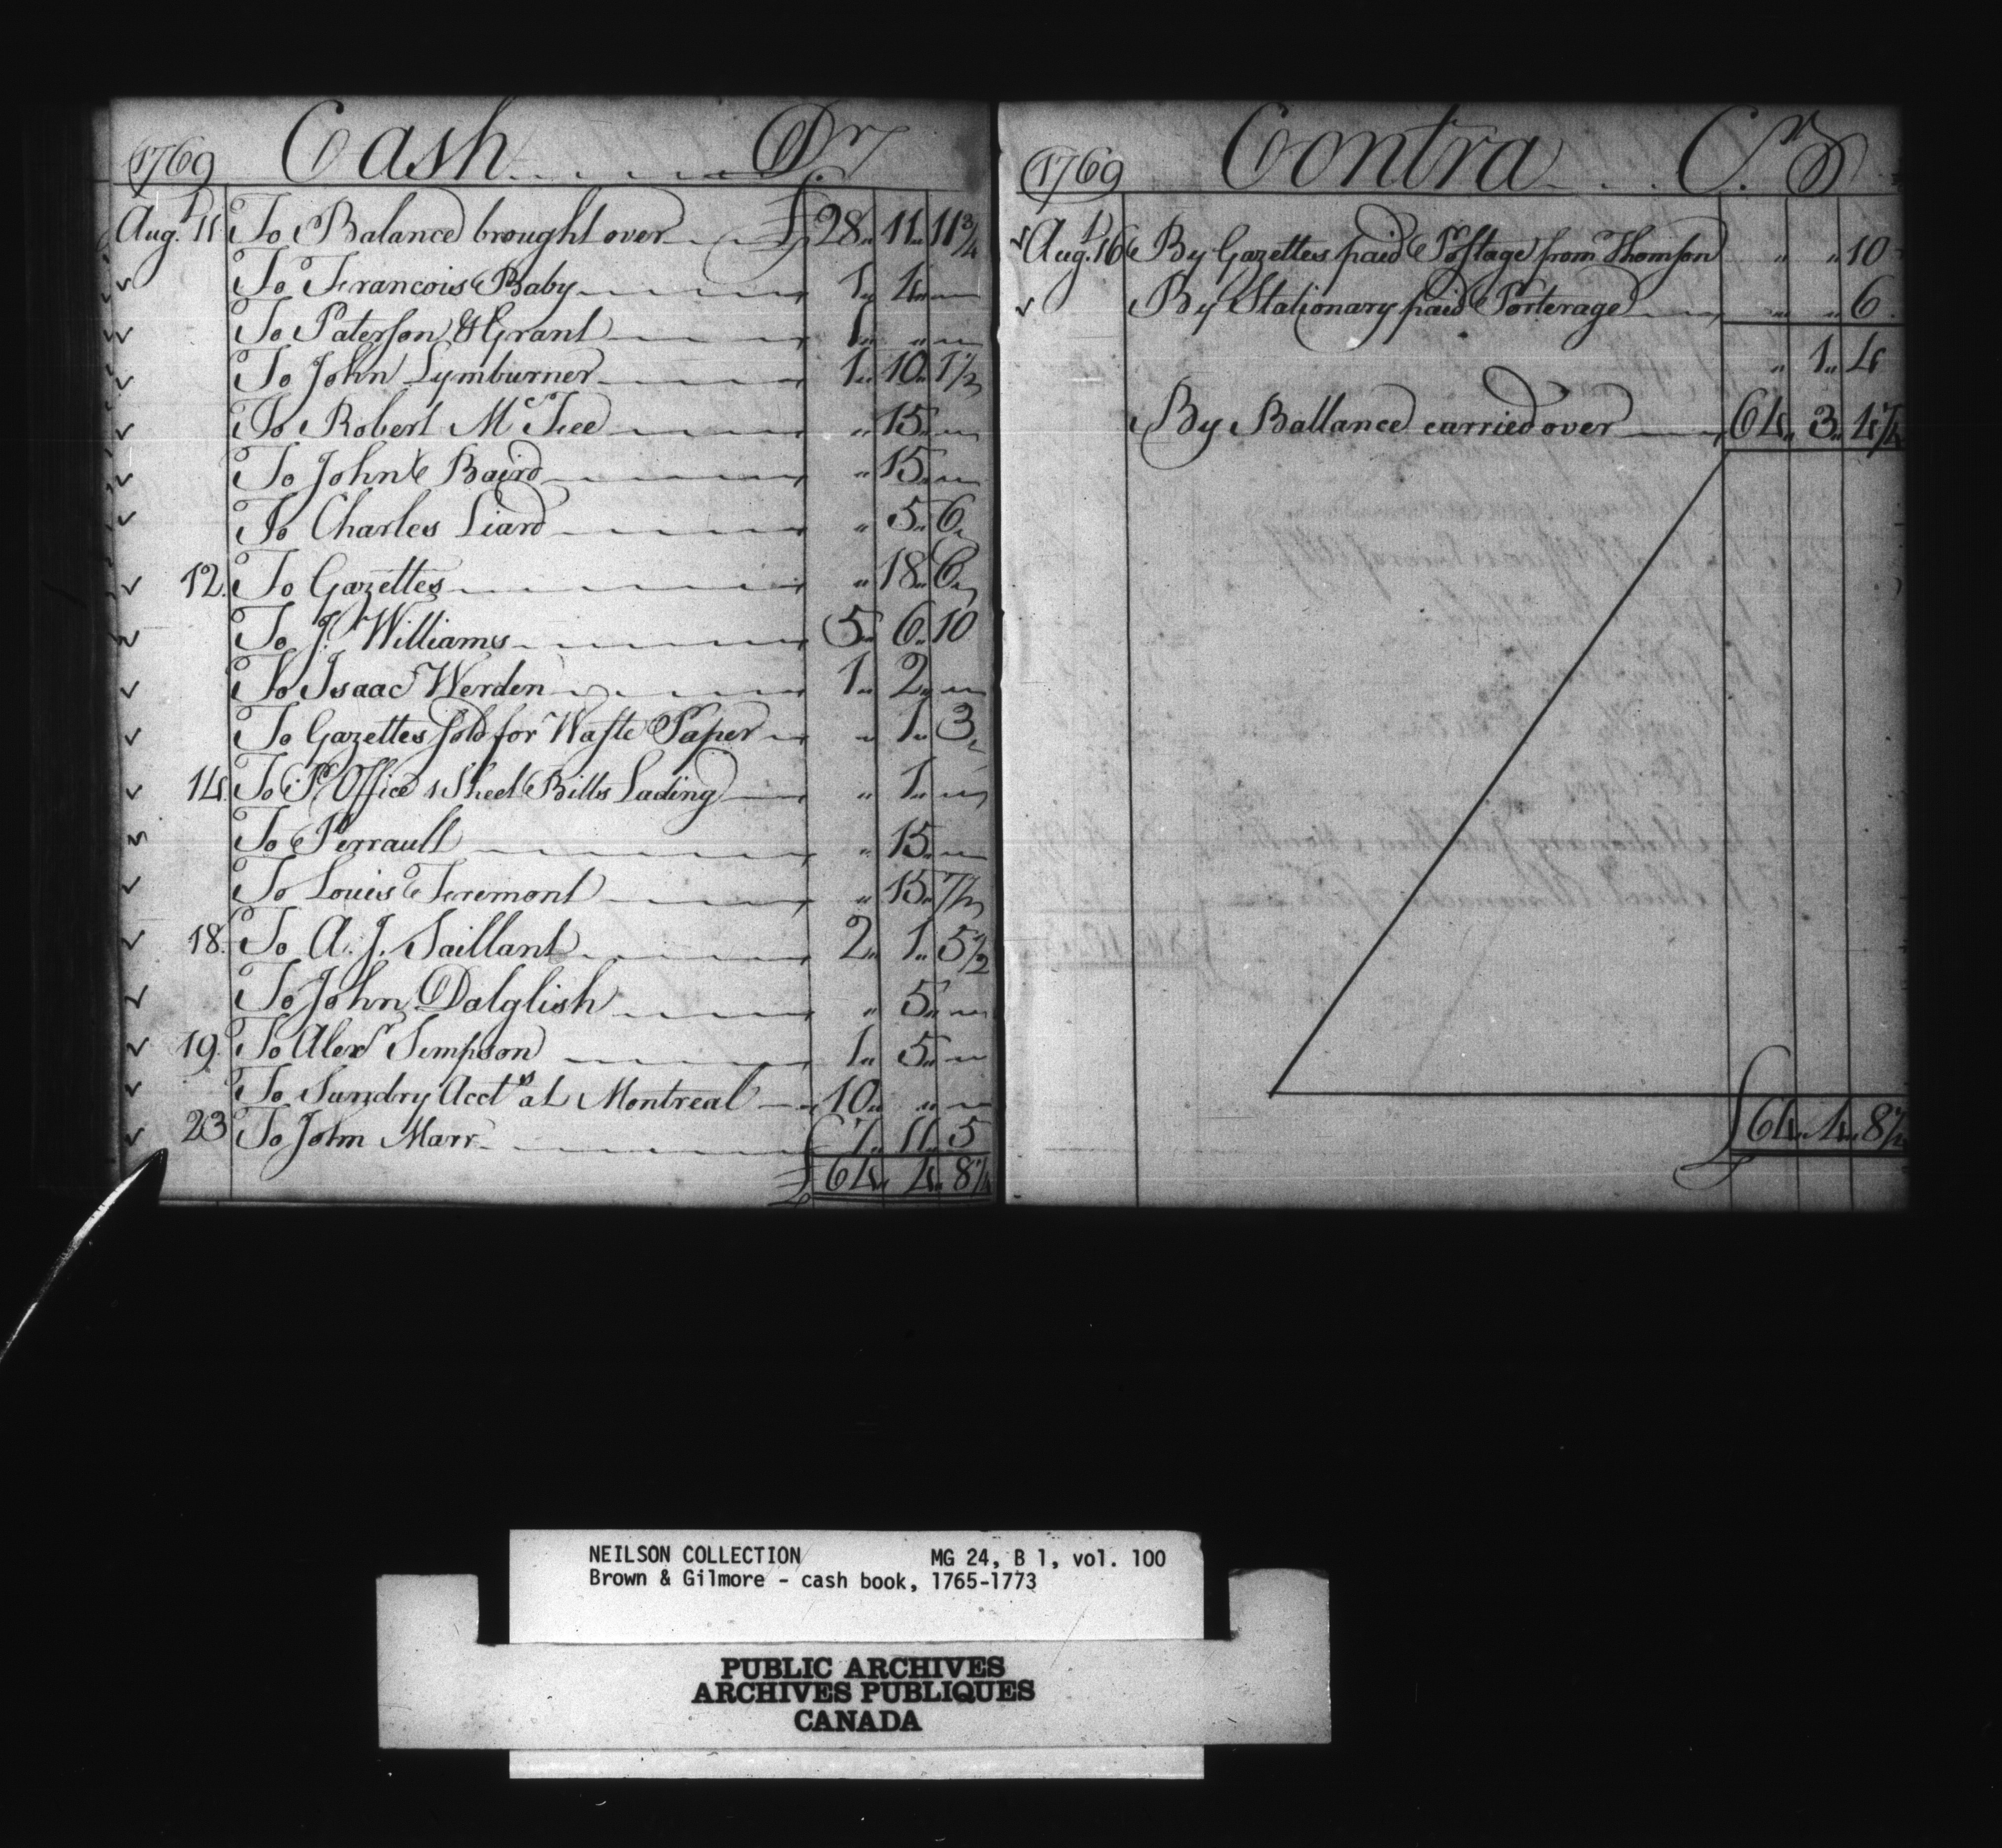 1769 Cash Dr
Augt. 11 To Balance brought over £ 28 „ 11 „ 11 3/4
To Francois Baby 1 „ 4 „ „
To Paterson & Grant 1 „ „ „
To John Lymburner 1 „ 10 „ 1 1/2
To Robert McFee „ 15 „ „
To John Baird „ 15 „ „
To Charles Liard „ 5 „ 6
12. To Gazettes „ 18 „ 6
To J. Williams 5 „ 6 „ 10
To Isaac Werden 1 „ 2 „ „
To Gazettes sold for Waste Paper „ 1 „ 3
14. To P. Office 1 Sheet Bills Lading „ 1 „ „
To Perrault „ 15 „ „
To Louis Fremont „ 15 „ 7 1/2
18. To A. J. Saillant 2 „ 1 „ 5 1/2
To John Dalglish „ 5 „ „
19. To Alexr Simpson 1 „ 5 „ „
To Sundry Accts at Montreal 10 „ „ „
23 To John Marr 7 „ 11 „ 5
£ 64 „ 4 „ 8 1/4
1769 Contra Cr
Augt. 16 By Gazettes paid Postage from Thomson „ „ 10
By Stationary paid Porterage „ „ 6
„ 1 „ 4
By Ballance carried over 64 „ 3 „ 4 1/4
£ 64 „ 4 „ 8 1/4
NEILSON COLLECTION MG 24, B 1, vol. 100
Brown & Gilmore - cash book, 1765-1773
PUBLIC ARCHIVES
ARCHIVES PUBLIQUES
CANADA